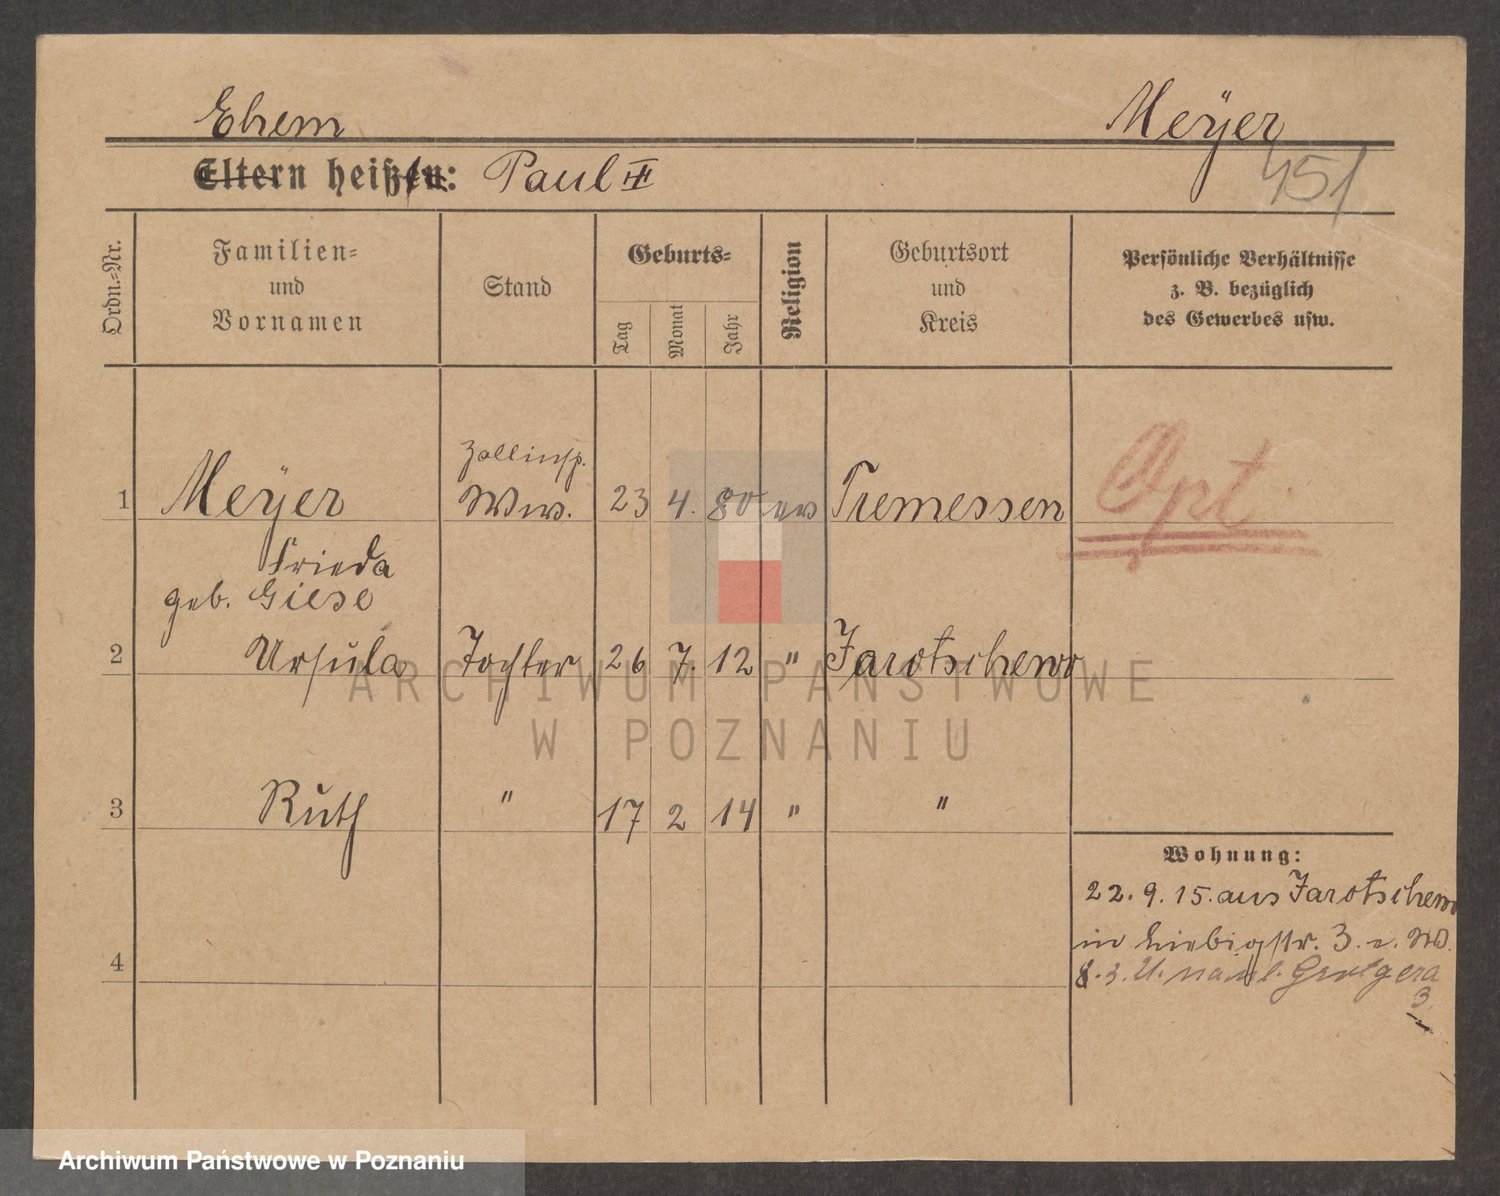 Ehem
Meÿer
Eltern heißen: Paul III
451
Ordn.-Nr.
Familien-
und
Vornamen
Stand
Geburts-
Tag
Monat
Jahr
Religion
Geburtsort
und
Kreis
Persönliche Verhältnisse
z. B. bezüglich
des Gewerbes usw.
Zollinsp.
1 Meÿer Wwe. 23 4. 80 ev Tremessen
Opt.
Frieda
geb. Giese
2 Ursula Tochter 26 7. 12 " Jarotschewo
ARCHIWUM PAŃSTWOWE
W POZNANIU
3 Ruth " 17 2 14 " "
Wohnung:
22. 9. 15. aus Jarotschewo
in Liebigstr. 3.
4
8. 3. Grotgera
3.
Archiwum Państwowe w Poznaniu